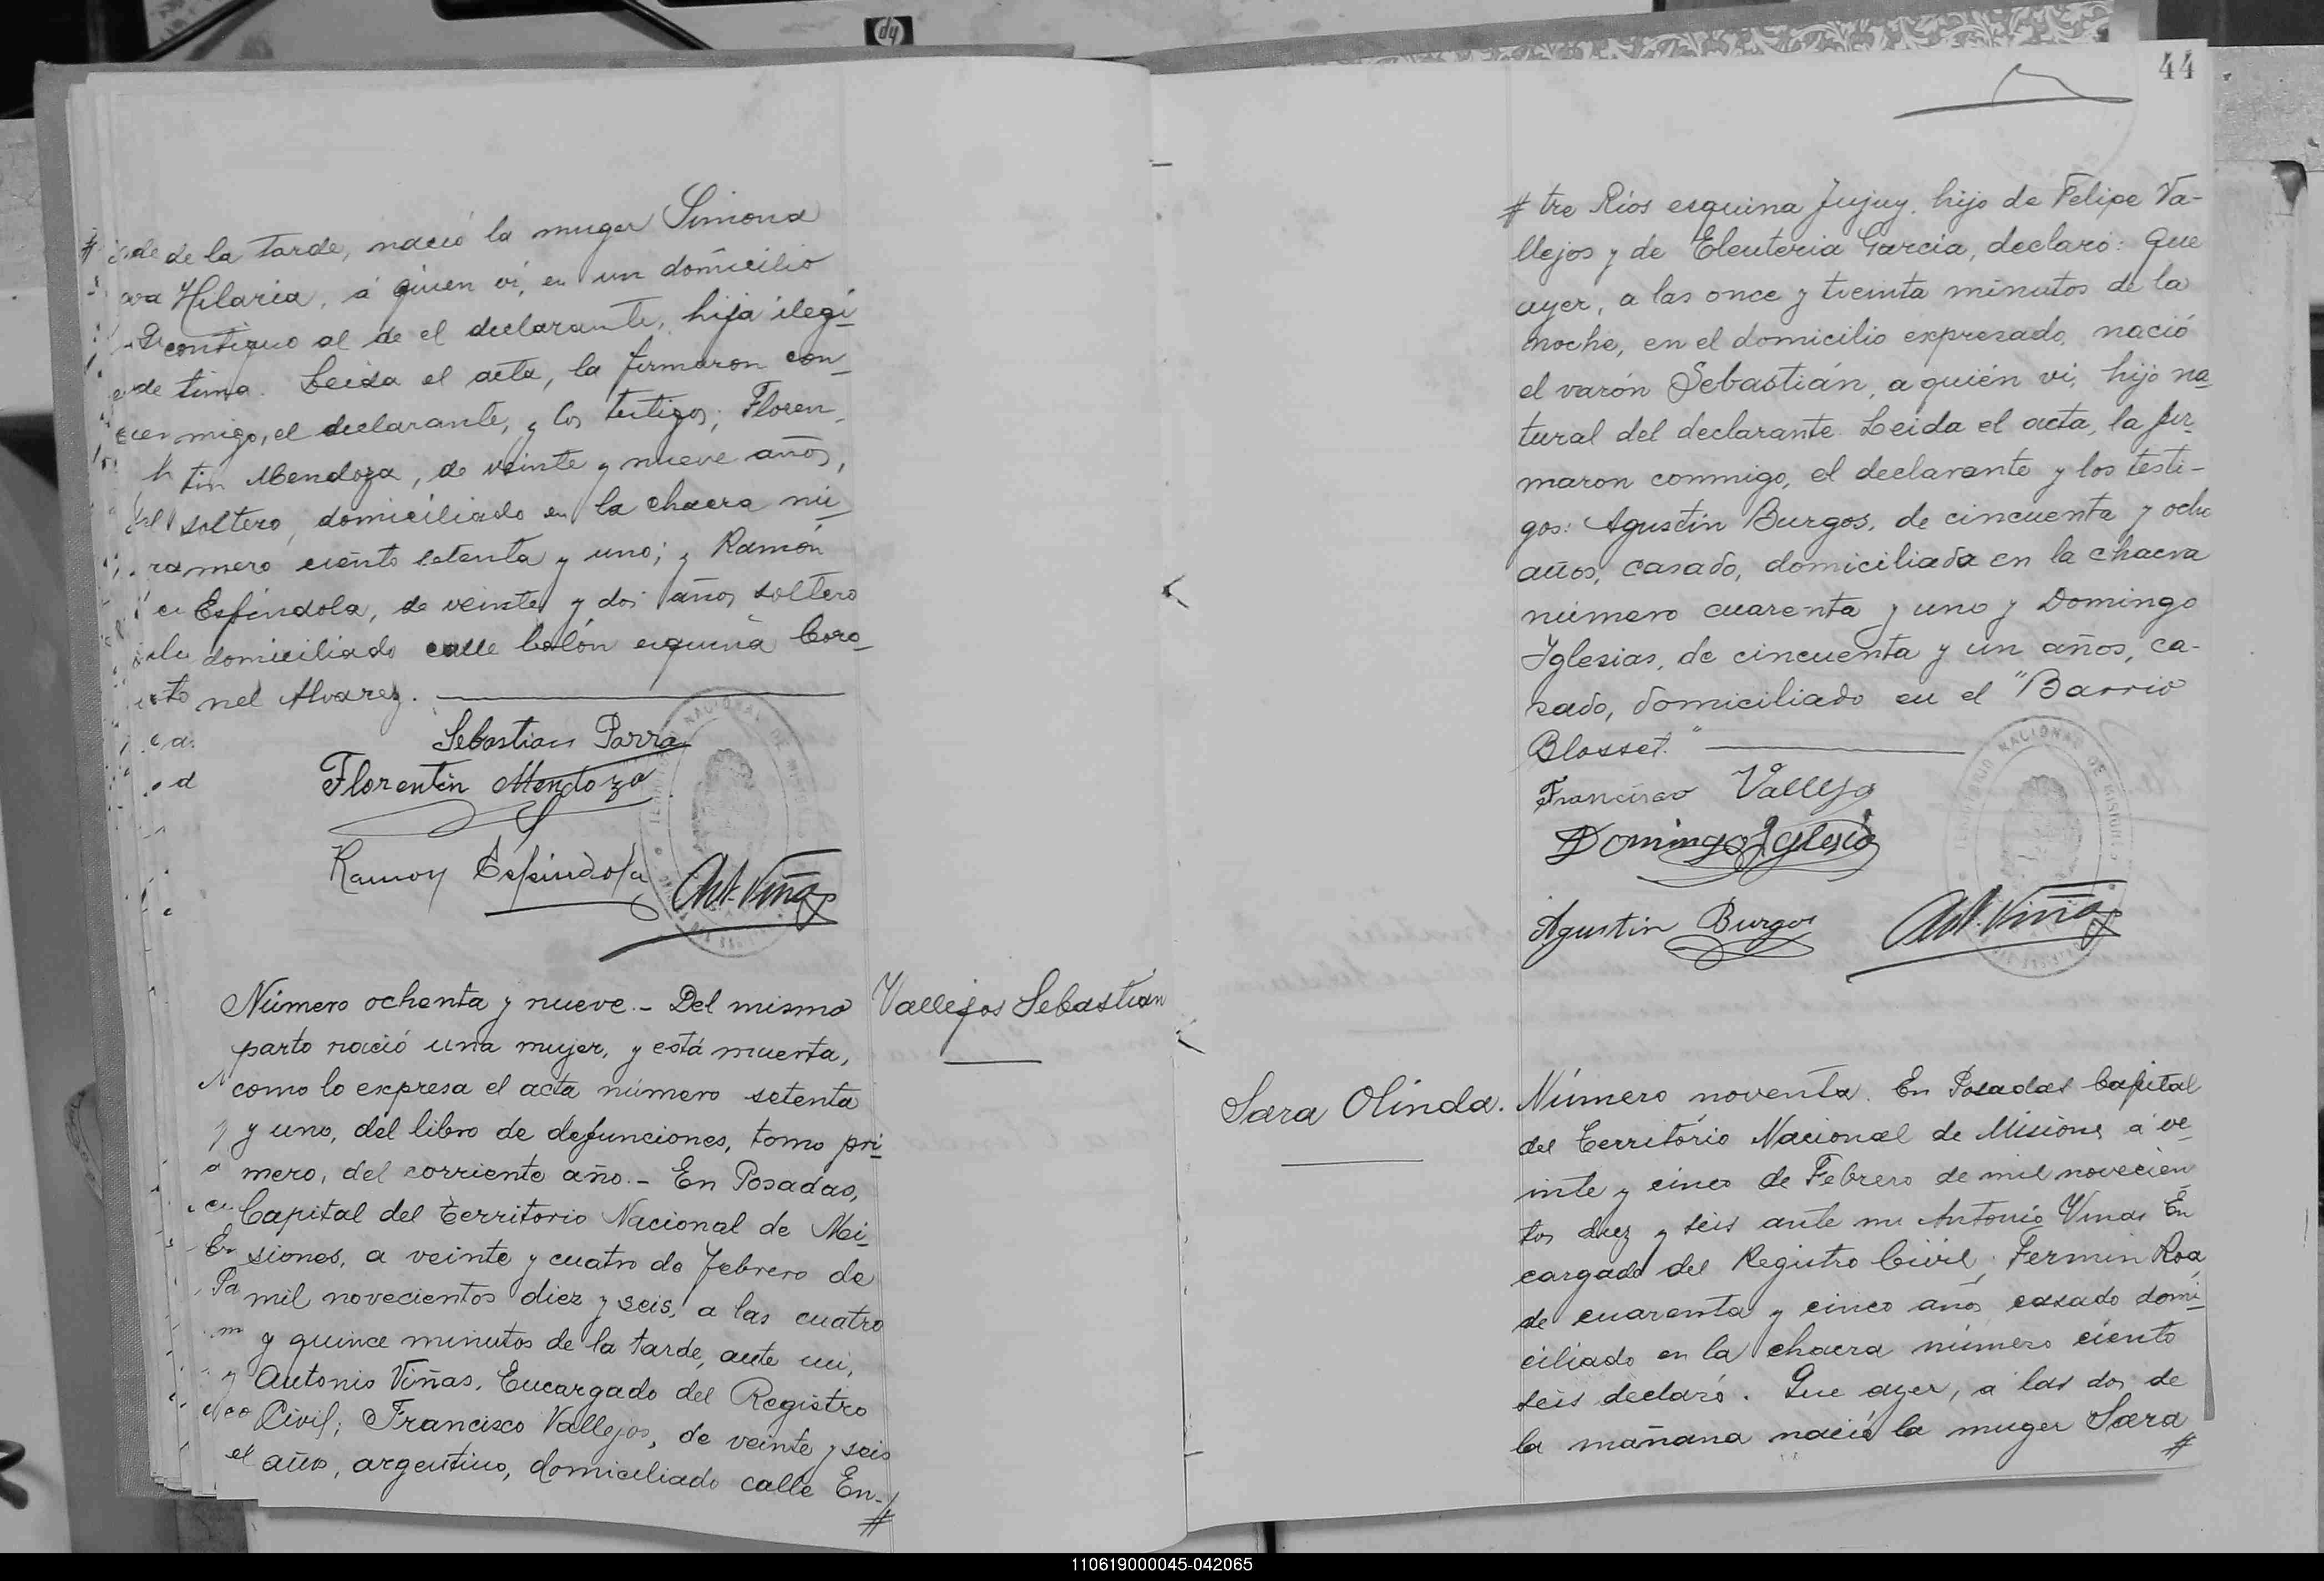 de la tarde, nació la muger Simona
Hilaria, á quien vi, en un domicilio
contiguo al de el declarante, hija ilegi-
tima. Leida el acta, la firmaron con-
migo, el declarante, y los testigos; Floren-
tin Mendoza, de veinte y nueve años,
soltero, domiciliado en la chacra nú-
mero ciento setenta y uno; y Ramón
Espindola, de veinte y dos años soltero
domiciliado calle Colón esquina Coro-
nel Alvarez.
Sebastian Parra
Florentin Mendoza
Ramon Espindola
Ant. Viñas
Número ochenta y nueve.- Del mismo
parto nació una mujer, y está muerta,
como lo expresa el acta número setenta
y uno, del libro de defunciones, tomo pri-
mero, del corriente año.- En Posadas,
Capital del Territorio Nacional de Mi-
siones, a veinte y cuatro de febrero de
mil novecientos diez y seis, a las cuatro
y quince minutos de la tarde, ante mi,
Antonio Viñas, Encargado del Registro
Civil; Francisco Vallejos, de veinte y seis
años, argentino, domiciliado calle En-
#
Vallejos Sebastian
44
# tre Rios esquina Jujuy, hijo de Felipe Va-
llejos y de Eleuteria Garcia, declaró: Que
ayer, a las once y treinta minutos de la
noche, en el domicilio expresado, nació
el varón Sebastián, a quién vi, hijo na-
tural del declarante. Leida el acta, la fir-
maron conmigo, el declarante y los testi-
gos: Agustin Burgos, de cincuenta y ocho
años, casado, domiciliado en la chacra
número cuarenta y uno y Domingo
Iglesias, de cincuenta y un años, ca-
sado, domiciliado en el "Barrio
Blosset."
Francisco Vallejo
Domingo Iglesia
Agustin Burgos
Ant. Viñas
Sara Olinda.
Número noventa. En Posadas Capital
del Territorio Nacional de Misiones á ve-
inte y cinco de Febrero de mil novecien
tos diez y seis ante mi Antonio Vinas En
cargado del Registro Civil; Fermin Roa,
de cuarenta y cinco años casado domi-
ciliado en la chacra número ciento
seis declaró. Que ayer, a las dos de
la mañana nació la muger Sara
#
110619000045-042065